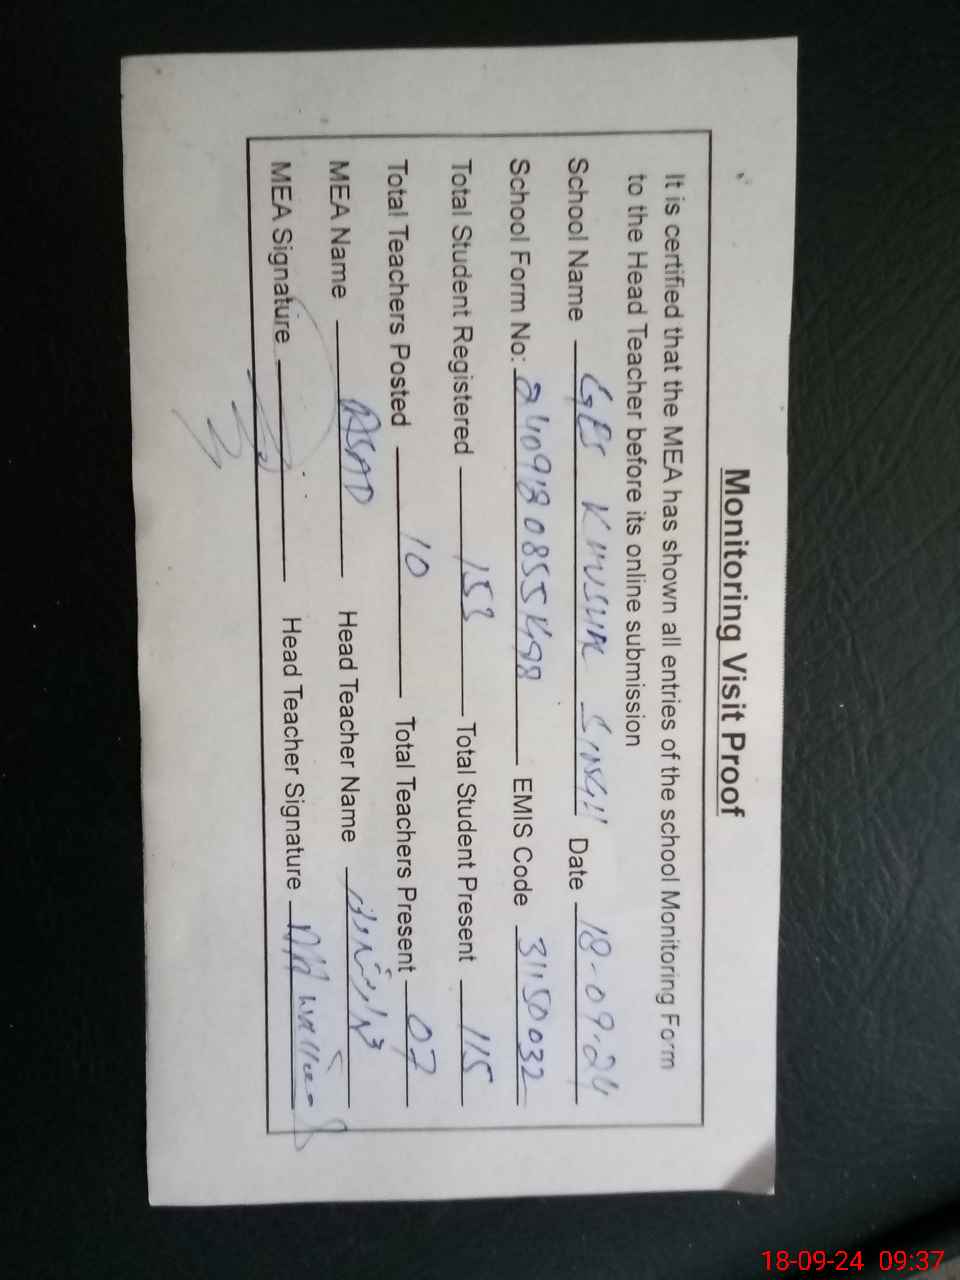 Monitoring Visit Proof
It is certified that the MEA has shown all entries of the school Monitoring Form
to the Head Teacher before its online submission
School Name GPS Date 18-09-24
School Form No: EMIS Code 31150032
Total Student Registered 153 Total Student Present 115
Total Teachers Posted 10 Total Teachers Present 07
MEA Name ASAD Head Teacher Name
MEA Signature Head Teacher Signature
18-09-24 09:37